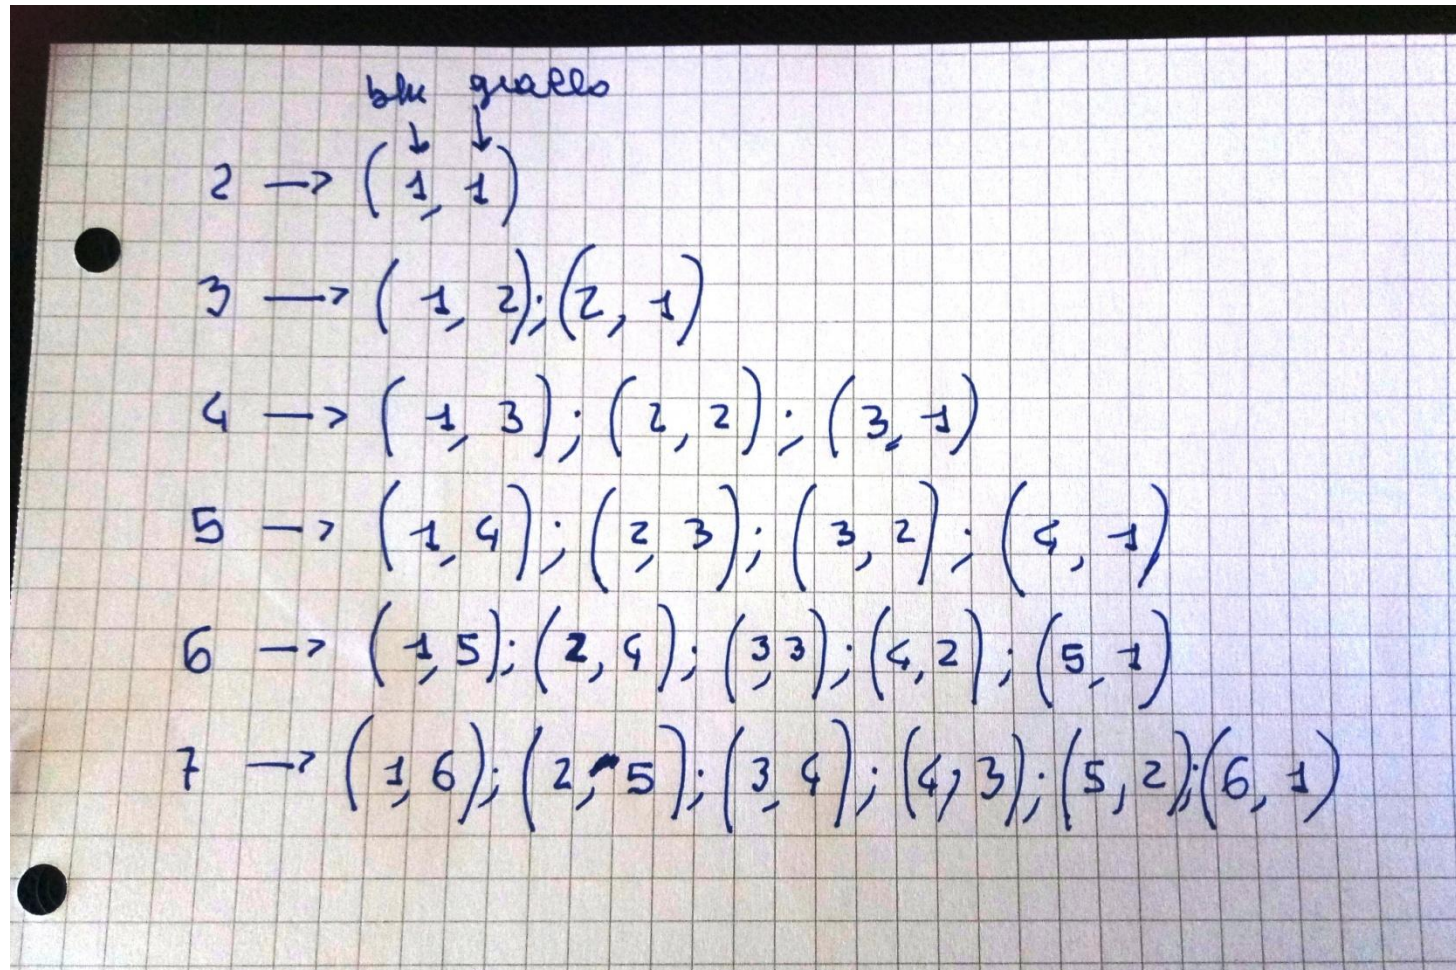 blu giallo
↓ ↓
2 → (1, 1)
3 → (1, 2); (2, 1)
4 → (1, 3); (2, 2); (3, 1)
5 → (1, 4); (2, 3); (3, 2); (4, 1)
6 → (1, 5); (2, 4); (3, 3); (4, 2); (5, 1)
7 → (1, 6); (2, 5); (3, 4); (4, 3); (5, 2); (6, 1)